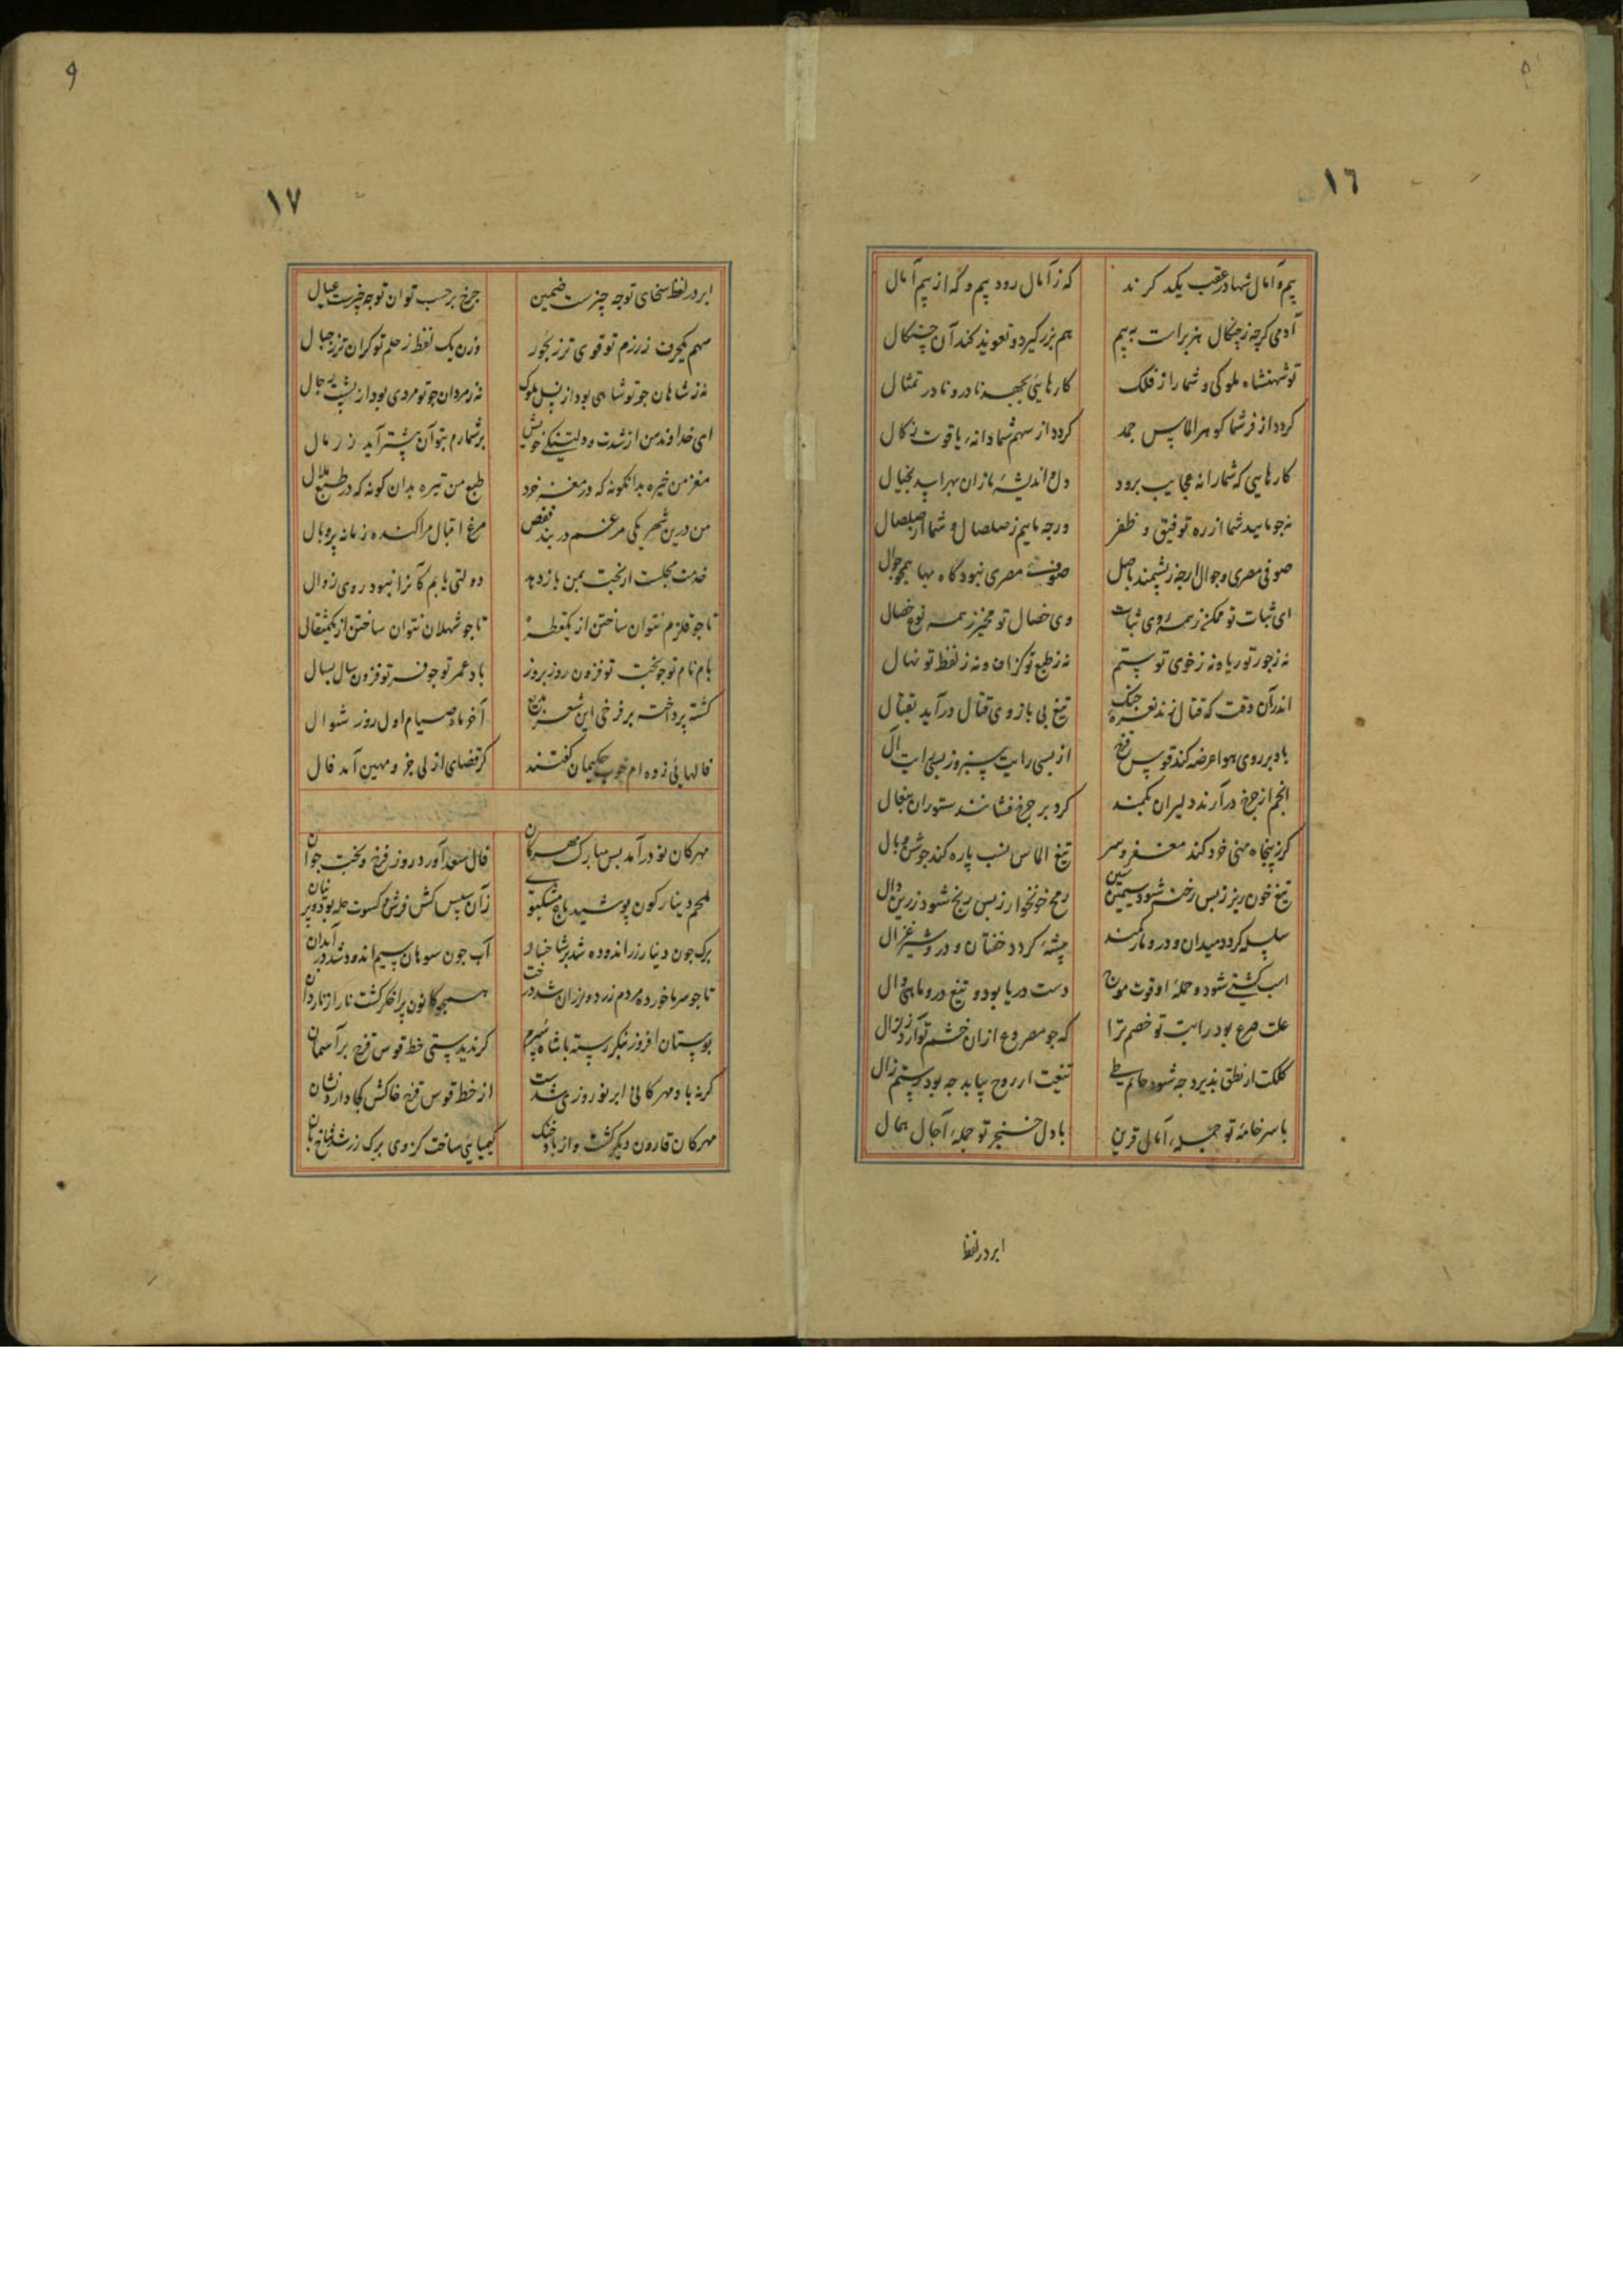 ١٦
بیم و آمال شها در عقب یکد کرند که ز آمال رود بیم و که از بیم آمال
آدمی کرچه ز چنکال هزبرانست به بیم هم بزر کیرد و تعویذ کند آن چنکال
تو شهنشاه ملوکی و شما را ز فلک کارهایی بجهد نادر و نادر تمثال
کردد از فر شما کوهر الماس جمد کردد از سهم شما دانهٔ یاقوت زکال
کارهایی که شما را نه عجایب برود دل و اندیشهٔ ما زان بهراسد بخیال
نه چو مایید شما از ره توفیق و ظفر ورچه ماییم ز صلصال و شما از صلصال
صوفی مصری و جوال ارچه ز پشمند باصل صوفت مصری نبود کاه بها همچو جوال
ای ثبات تو ممکن ز همه روی ثبات وی خصال تو مخیر ز همه نوع خصال
نه ز جور تو ریا و نه ز خوی تو ستم نه ز طبع تو کزاف و نه ز لفظ تو نهال
اندر آن وقت که قتال زند نعره جنک تیغ بی بازوی قتال در آید بقتال
باد بر روی هوا عرضه کند قوس قزح از بسی رایت سبز و ز بسی رایت آل
انجم از چرخ درآرند دلیران بکمند کرد بر چرخ فشانند ستوران بنعال
کرز پنجاه منی خرد کند مغفر و سر تیغ الماس نسب پاره کند جوشن و بال
تیغ خون ریز ز بس رخنه شود سیمین سین رمح خونخوار ز بس رنج شود زرین دال
سله کردد میدان و درو مار کمند بیشه کردد خفتان و درو شیر غزال
اسب کشتی شود و حملهٔ او قوت موج دست دریا بود و تیغ درو ماهی وال
علت صرع بود رایت تو خصم ترا که چو مصروع ازان خشم تو آرد زلزال
کلکت ار نطق پذیرد چه شود حاتم طی تیغت ار روح بیابد چه بود رستم زال
با سر خامهٔ تو جمله آمال قرین با دل خنجر تو جمله آجال همال
ابر در لفظ
١٧
ابر در لفظ سخای تو چه چیزست ضمین چرخ بر حسب توان تو چه چیزست عیال
سهم یکحرف ز رزم تو قوی تر ز بحور وزن یک لفظ ز حلم تو کران تر ز جبال
نه ز شاهان چو تو شاهی بود از نسل ملوک نه ز مردان چو تو مردی بود از پشت رجال
ای خداوند من از شدت و دلتنکی خویش بر شمارم بتو آن بیشتر آید ز رمال
مغز من خیره بدانکونه که در مغز خرد طبع من تیره بدان کونه که در طبع ملال
من درین شهر یکی مرغم در بند قفص مرغ اقبال مراکنده زمانه پر و بال
خدمت مجلست ار بخت بمن باز دهد دولتی یابم کآنرا نبود روی زوال
تا چو قلزم نتوان ساختن از یکقطره تا چو شهلان نتوان ساختن از یکمثقال
بام نام تو چو بخت تو فزون روز بروز باد عمر تو چو فر تو فزون سال بسال
کشته پرداخته بر فرخی این شعر بدیع آخر ماه صیام اول روز شوال
فالهائی زده ام خوب حکیمان کفتند کز قضای ازلی جز و مهین آمد فال
مهرکان نو در آمد بس مبارک مهرکان فال سعد آورد و روز فرخ و بخت جوان
ملحم دینار کون پوشید باغ مشکبوی زآن سپس کش فرش و کسوت حله بود و پرنیان
برک چون دینار زر اندوده شد بر شاخسار آب چون سوهان سیم اندود شد در آبدان
تا چو سرما خورده مردم زرد و لرزان شد درخت همچو کانون پر اخکر کشت نار از ناردان
بوستان افروز بنکر رسته با شاه سپرم کر ندیدستی خط قوس قزح بر آسمان
کر نه باد مهرکانی ابر نوروزی شدست از خط قوس قزح خاکش کجا دارد نشان
مهرکان قارون دیکر کشت و از باد خنک کیمیایی ساخت کز وی برک زر شد شاخ بان